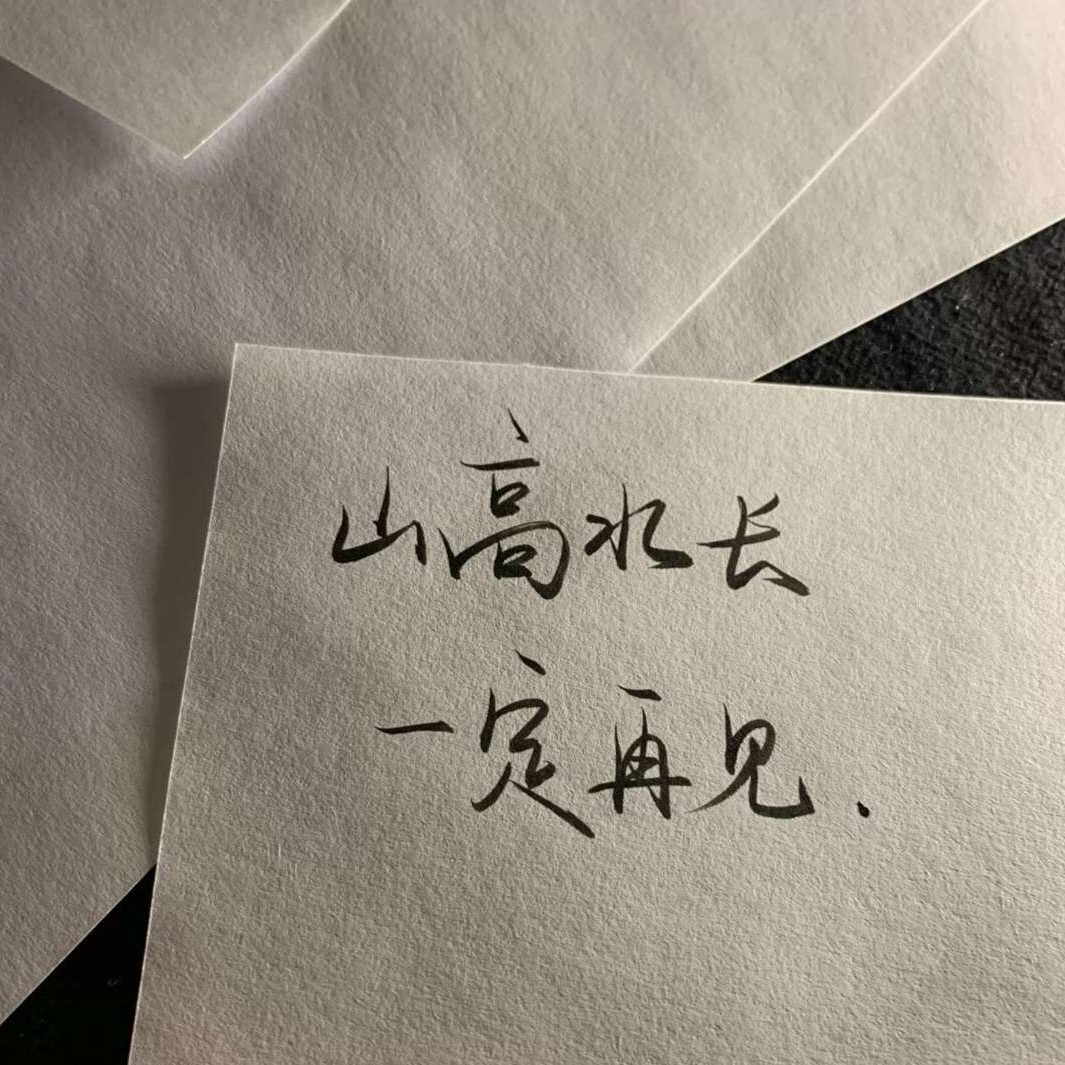 山高水长
一定再见.